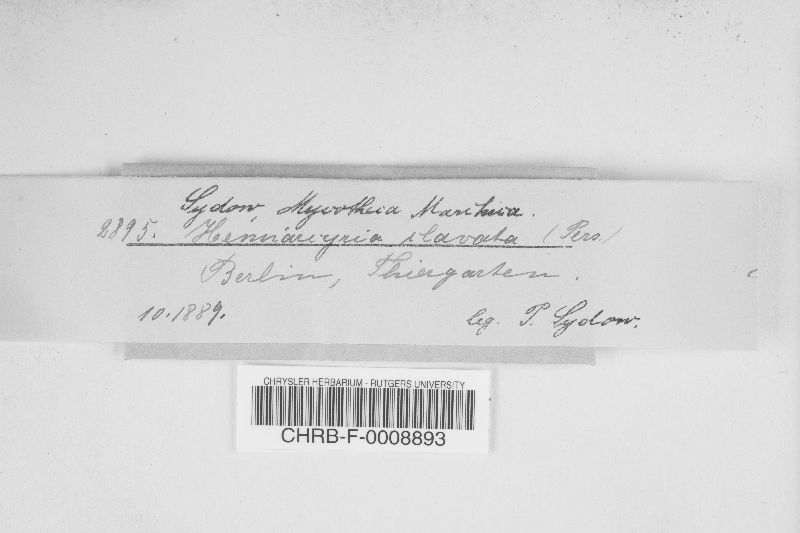 Sydow, Mycotheca Marchica.
2895. Hemiarcyria clavata (Pers.)
Berlin, Thiergarten.
10.1889. leg. P. Sydow.
CHRYSLER HERBARIUM - RUTGERS UNIVERSITY
CHRB-F-0008893